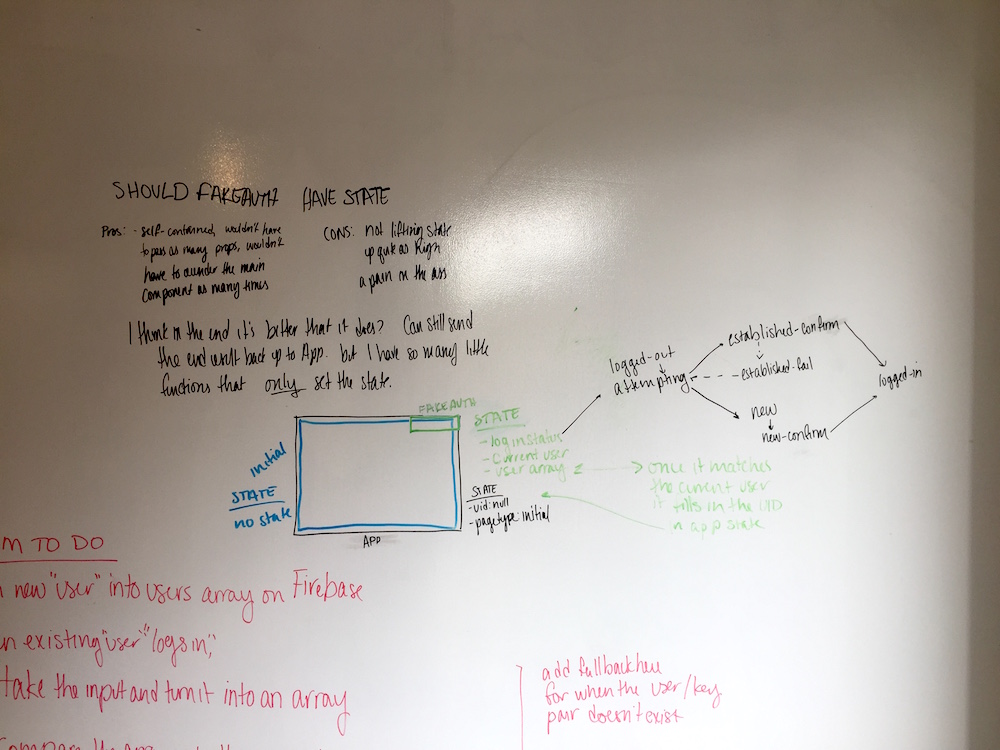 SHOULD FAKEAUTH HAVE STATE
Pros: - self-contained, wouldn't have
to pass as many props, wouldn't
have to rerender the main
component as many times
CONS: not lifting state
up quite as high
a pain in the ass
I think in the end it's better that it does? Can still send
the end result back up to App. but I have so many little
functions that only set the state.
FAKEAUTH
STATE
- login status
- current user
- user array
initial
STATE
no state
STATE
- uid: null
- pagetype: initial
APP
once it matches
the current user
it fills in the UID
in app state
logged-out
attempting
established-confirm
established-fail
new
new-confirm
logged-in
M TO DO
new "user" into users array on Firebase
n existing "user" "logs in",
take the input and turn it into an array
Compare the
add fallback here
for when the user/key
pair doesn't exist